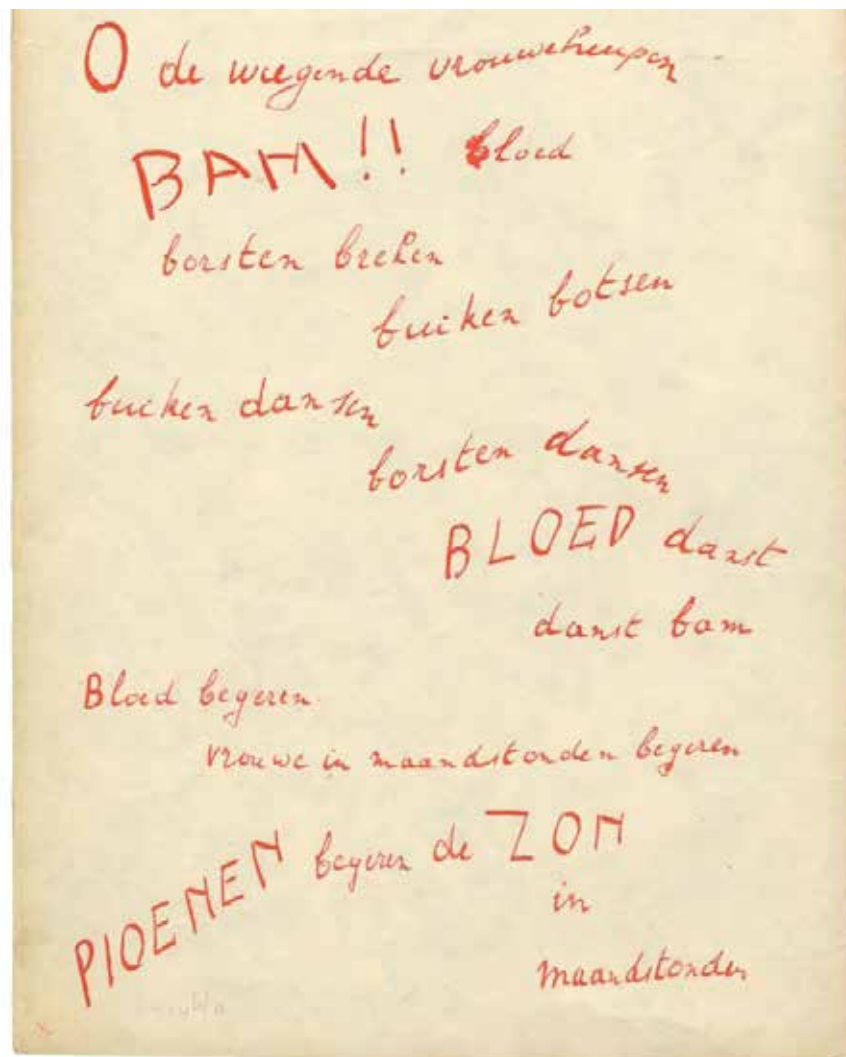 O de wiegende vrouweheupen
BAM!! bloed
borsten breken
buiken botsen
buiken dansen
borsten dansen
BLOED danst
danst bam
Bloed begeren.
vrouwe in maandstonden begeren
PIOENEN begeren de ZON
in
maandstonden